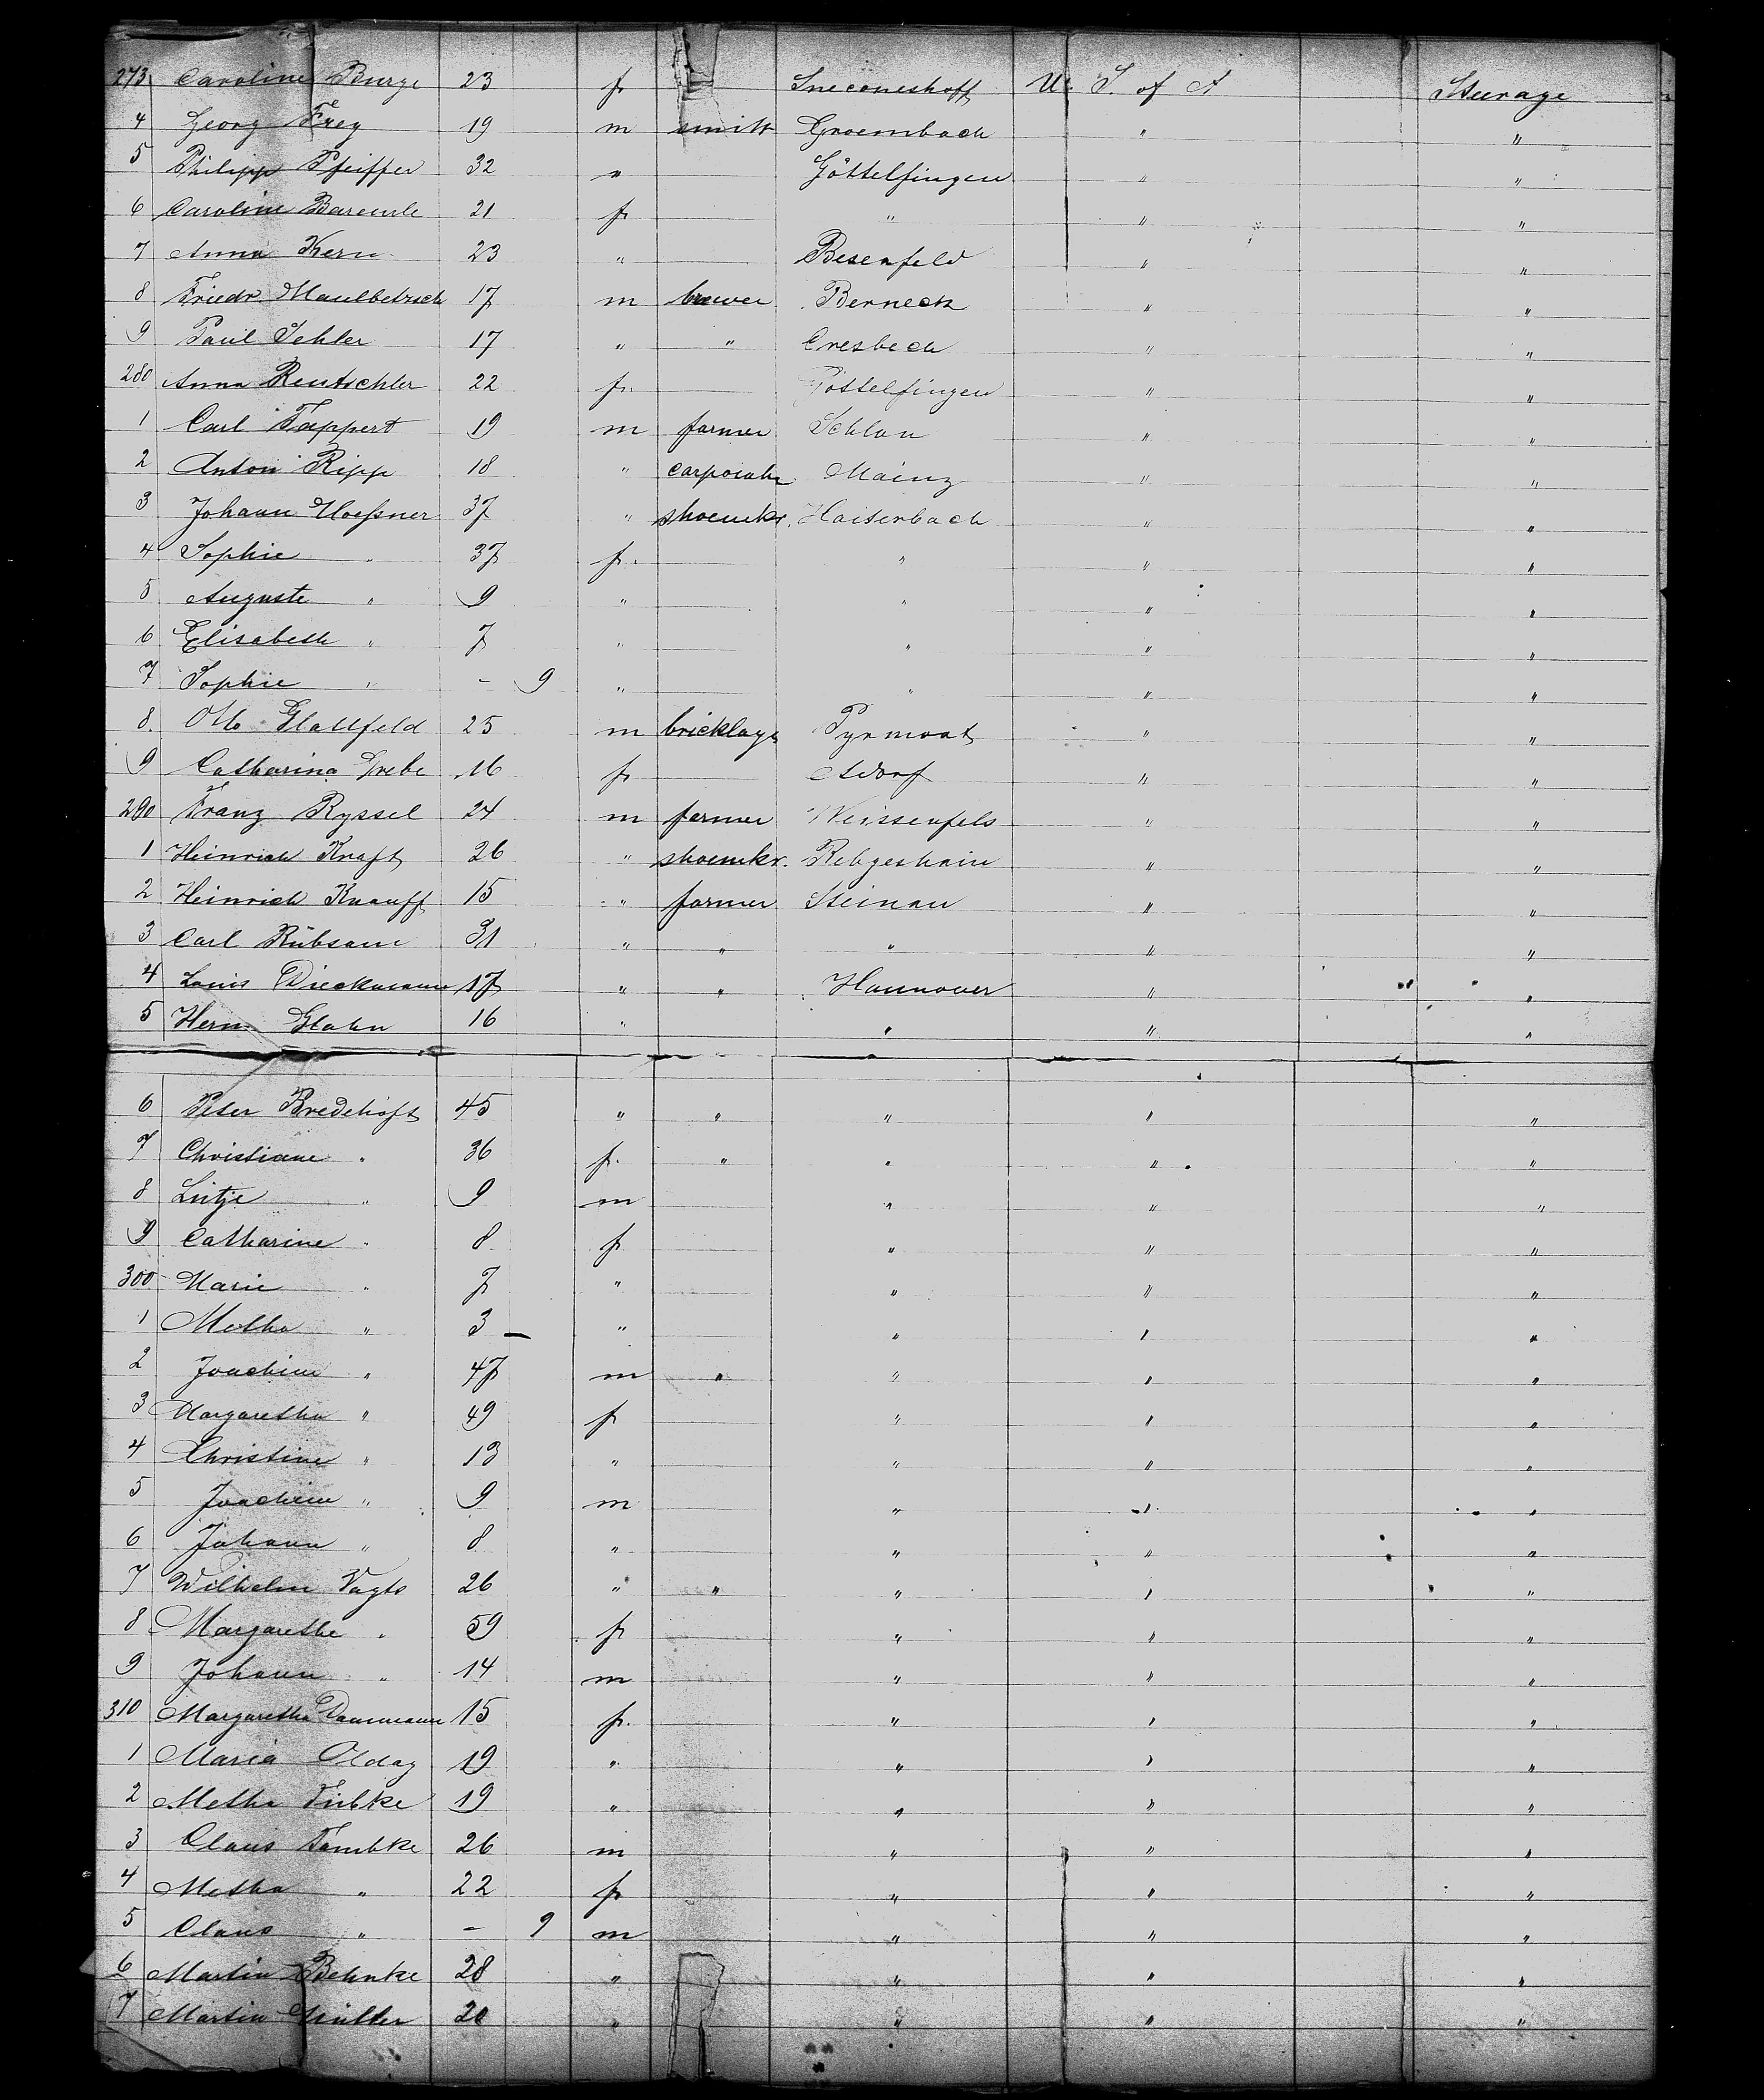 273 Caroline Burge 23 f Sneconeshoff U. S. of A Steerage
4 Georg Frey 19 m smith Groembach " "
5 Philipp Pfeiffer 32 " Göttelfingen " "
6 Caroline 21 f " " "
7 Anna Kern 23 " Besenfeld " "
8 Friedr Maulbetsch 17 m brewer Berneck " "
9 Paul Sehler 17 " " Cresbech " "
280 Anna Rentschler 22 f. Göttelfingen " "
1 Carl Tappert 19 m farmer Schlan " "
2 Anton Ripp 18 " Mainz " "
3 Johann Hoessner 37 " shoemkr. Haiterbach " "
4 Sophie " 37 f. " " "
5 Auguste " 9 " " " "
6 Elisabeth " 7 " " " "
7 Sophie " - 9 " " " "
8. Otto Glattfeld 25 m bricklayr Pyrmont " "
9 Catharina Grebe 16 f Adorf " "
290 Franz Ryssel 24 m farmer Weissenfels " "
1 Heinrich Kraft 26 " shoemkr. Rebgeshain " "
2 Heinrich Knauff 15 " farmer Steinau " "
3 Carl Rübsam 31 " " " " "
4 Louis Dieckmann 17 " " Hannover " "
5 Herm. Glahn 16 " " " "
6 Peter Bredehoft 45 " " " " "
7 Christiane " 36 f. " " " "
8 Lütje " 9 m " " "
9 Catharine " 8 f " " "
300 Marie " 7 " " " "
1 Metha " 3 " " " "
2 Joachim " 47 m " " " "
3 Margaretha " 49 f " " "
4 Christine " 13 " " " "
5 Joachim " 9 m " " "
6 Johann " 8 " " " "
7 Wilhelm Vagts 26 " " " " "
8 Margarethe " 59 f " " "
9 Johann " 14 m " " "
310 Margaretha Dammann 15 f. " " "
1 Maria Oldag 19 " " " "
2 Metha Fitbke 19 " " " "
3 Claus Tambke 26 m " " "
4 Metha " 22 f " " "
5 Claus " - 9 m " " "
6 Martin Behnke 28 " " " "
7 Martin Müller 20 " " " "